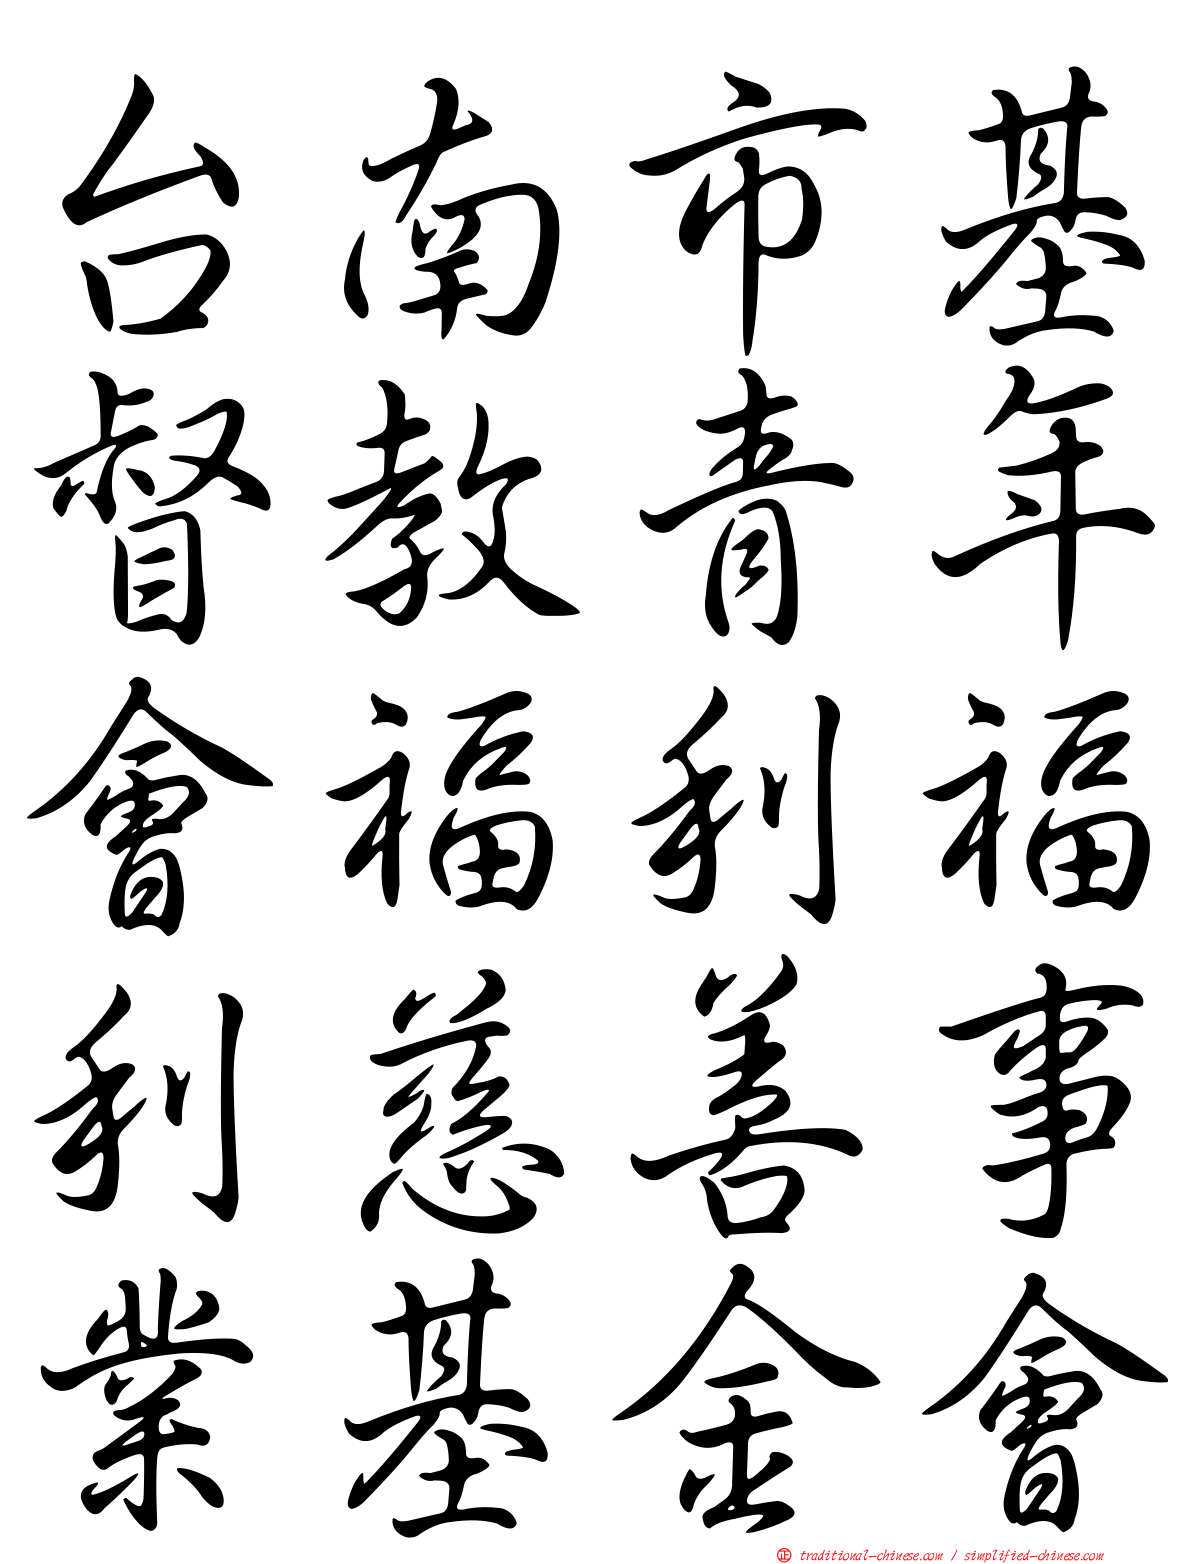 台南市基
督教青年
會福利福
利慈善事
業基金會
正 traditional-chinese.com / simplified-chinese.com